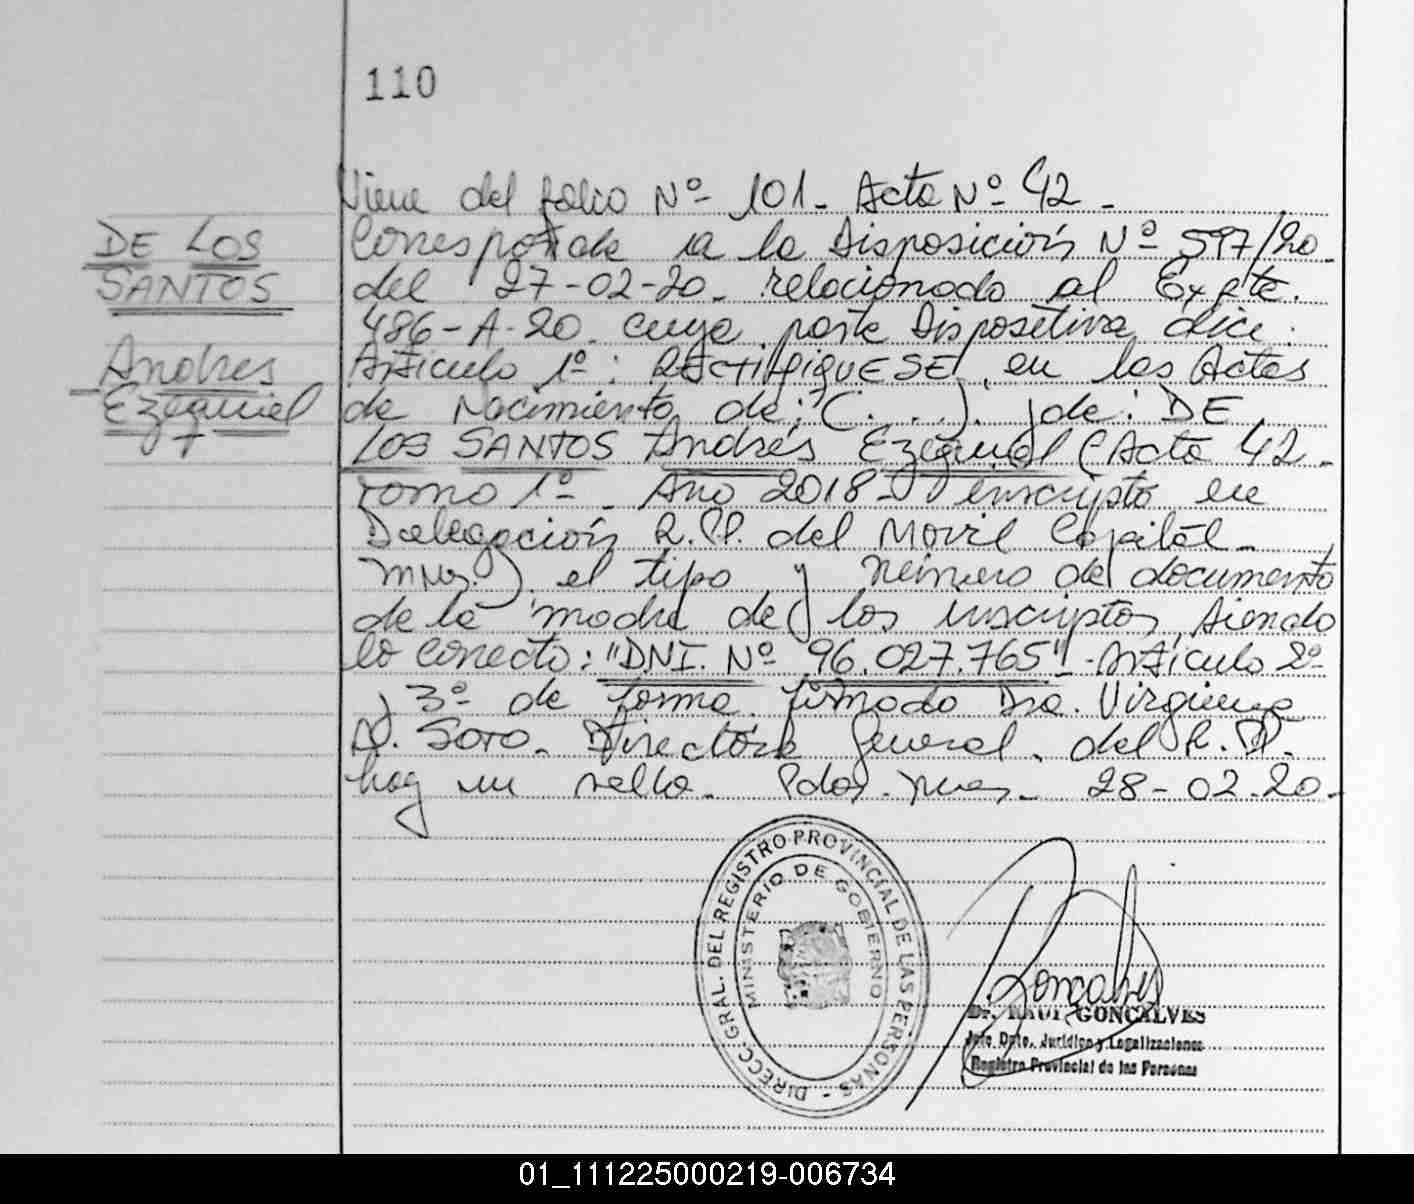 110
DE LOS
SANTOS
Andres
Ezequiel
Viene del folio Nº 101- Acta Nº 42-
Corresponde a la Disposición Nº 597/20-
del 27-02-20- relacionado al Expte.
486-A-20. cuya parte Dispositiva dice:
Articulo 1º: RECTIFIQUESE, en las Actas
de Nacimiento de: (....) de: DE
LOS SANTOS Andrés Ezequiel (Acta 42-
Tomo 1º- Año 2018- inscripto en
Delegación R.P.P. del Movil Capital-
Mnes.) el tipo y número de documento
de la madre de los inscriptos, siendo
lo correcto: "DNI. Nº 96.027.765"- Articulo 2º
y 3º de forma firmado Dra. Virginia
Soto- Directora General del R.P.P.
hay un sello- Pdas. Mnes- 28-02-20-
DIRECC. GRAL. DEL REGISTRO PROVINCIAL DE LAS PERSONAS -
MINISTERIO DE GOBIERNO
Goncalves
Dr. RAUL GONCALVES
Jefe Dpto. Jurídico y Legalizaciones
Registro Provincial de las Personas
01_111225000219-006734